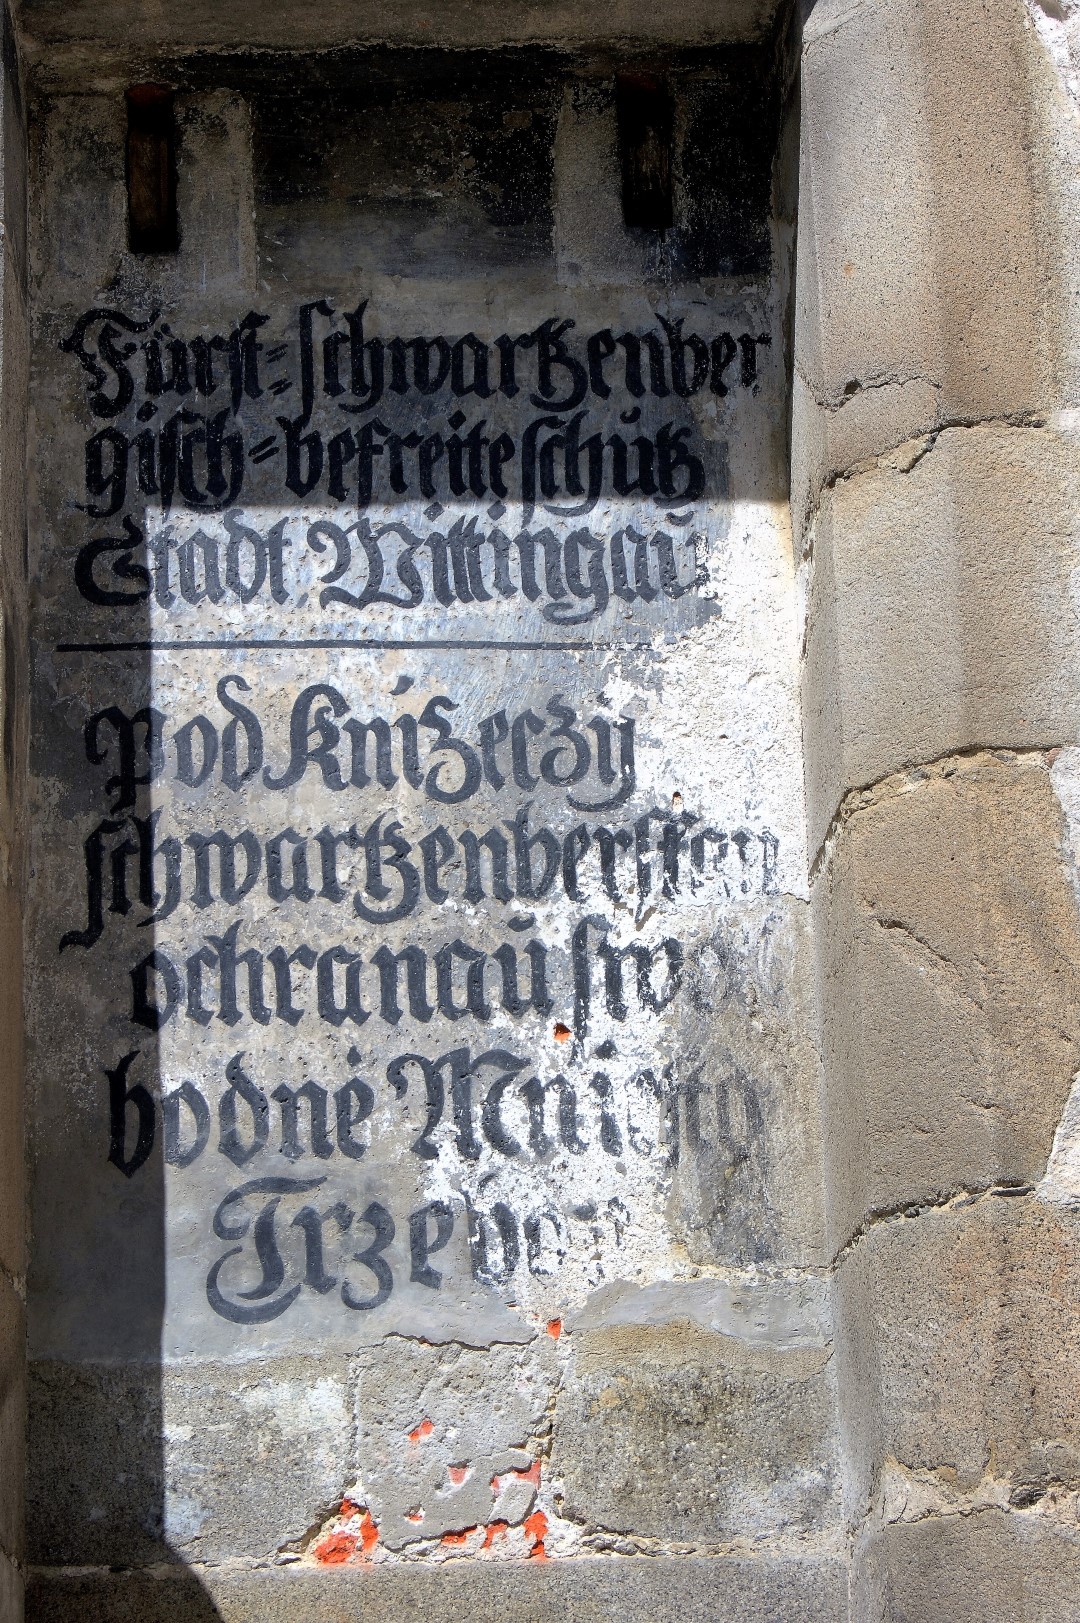 Fürst=schwartzenber
gisch=befreite schutz
Stadt Wittingaŭ
Pod knízeczÿ
schwartzenberskau
ochranaŭ swo
bodnė Mniesto
Trzebon